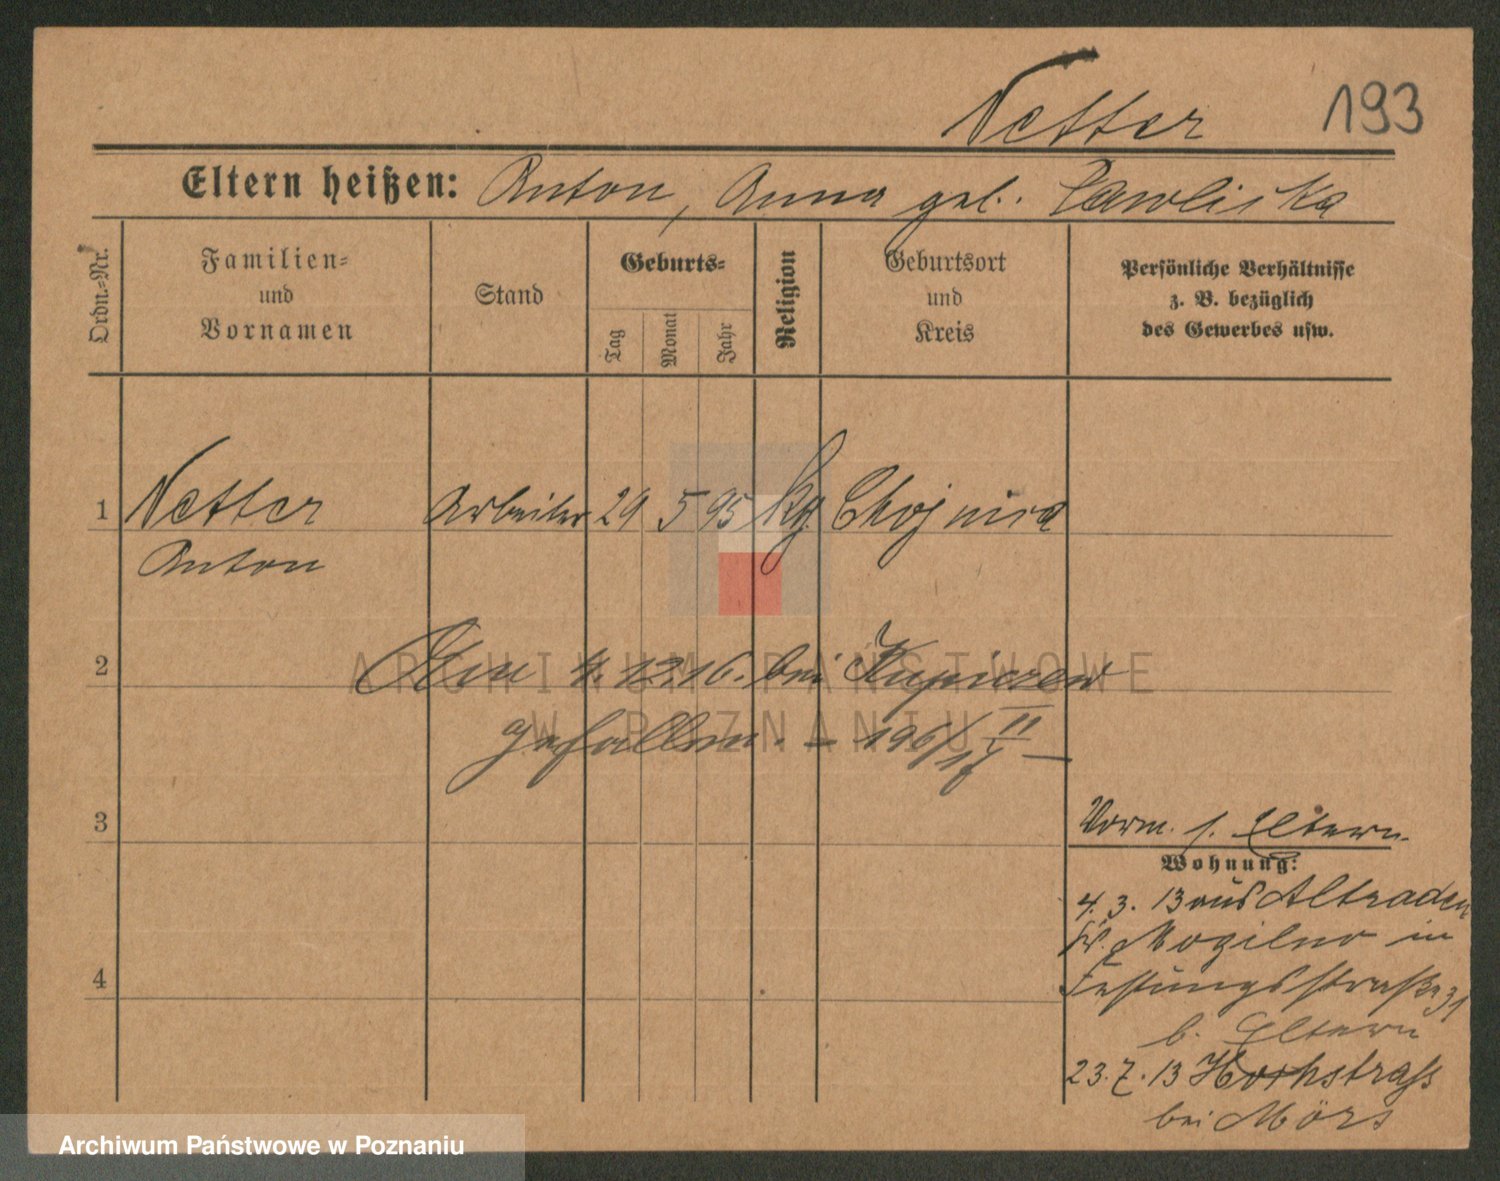 Netter 193
Eltern heißen: Anton, Anna geb. Pawliska
Ordn.-Nr.
Familien-
und
Vornamen
Stand
Geburts-
Tag
Monat
Jahr
Religion
Geburtsort
und
Kreis
Persönliche Verhältnisse
z. B. bezüglich
des Gewerbes usw.
1 Netter Arbeiter 29 5 95 kg. Chojnica
Anton
2 Am 4.12.16. bei
gefallen. - 196/17 II -
3
4
Vorm. s. Eltern
Wohnung:
4. 3. 13 aus Altraden
Kr. Mogilno in
Festungsstraße 31
b. Eltern
23. 7. 13 Hochstraß
bei Mörs
ARCHIWUM PAŃSTWOWE
W POZNANIU
Archiwum Państwowe w Poznaniu